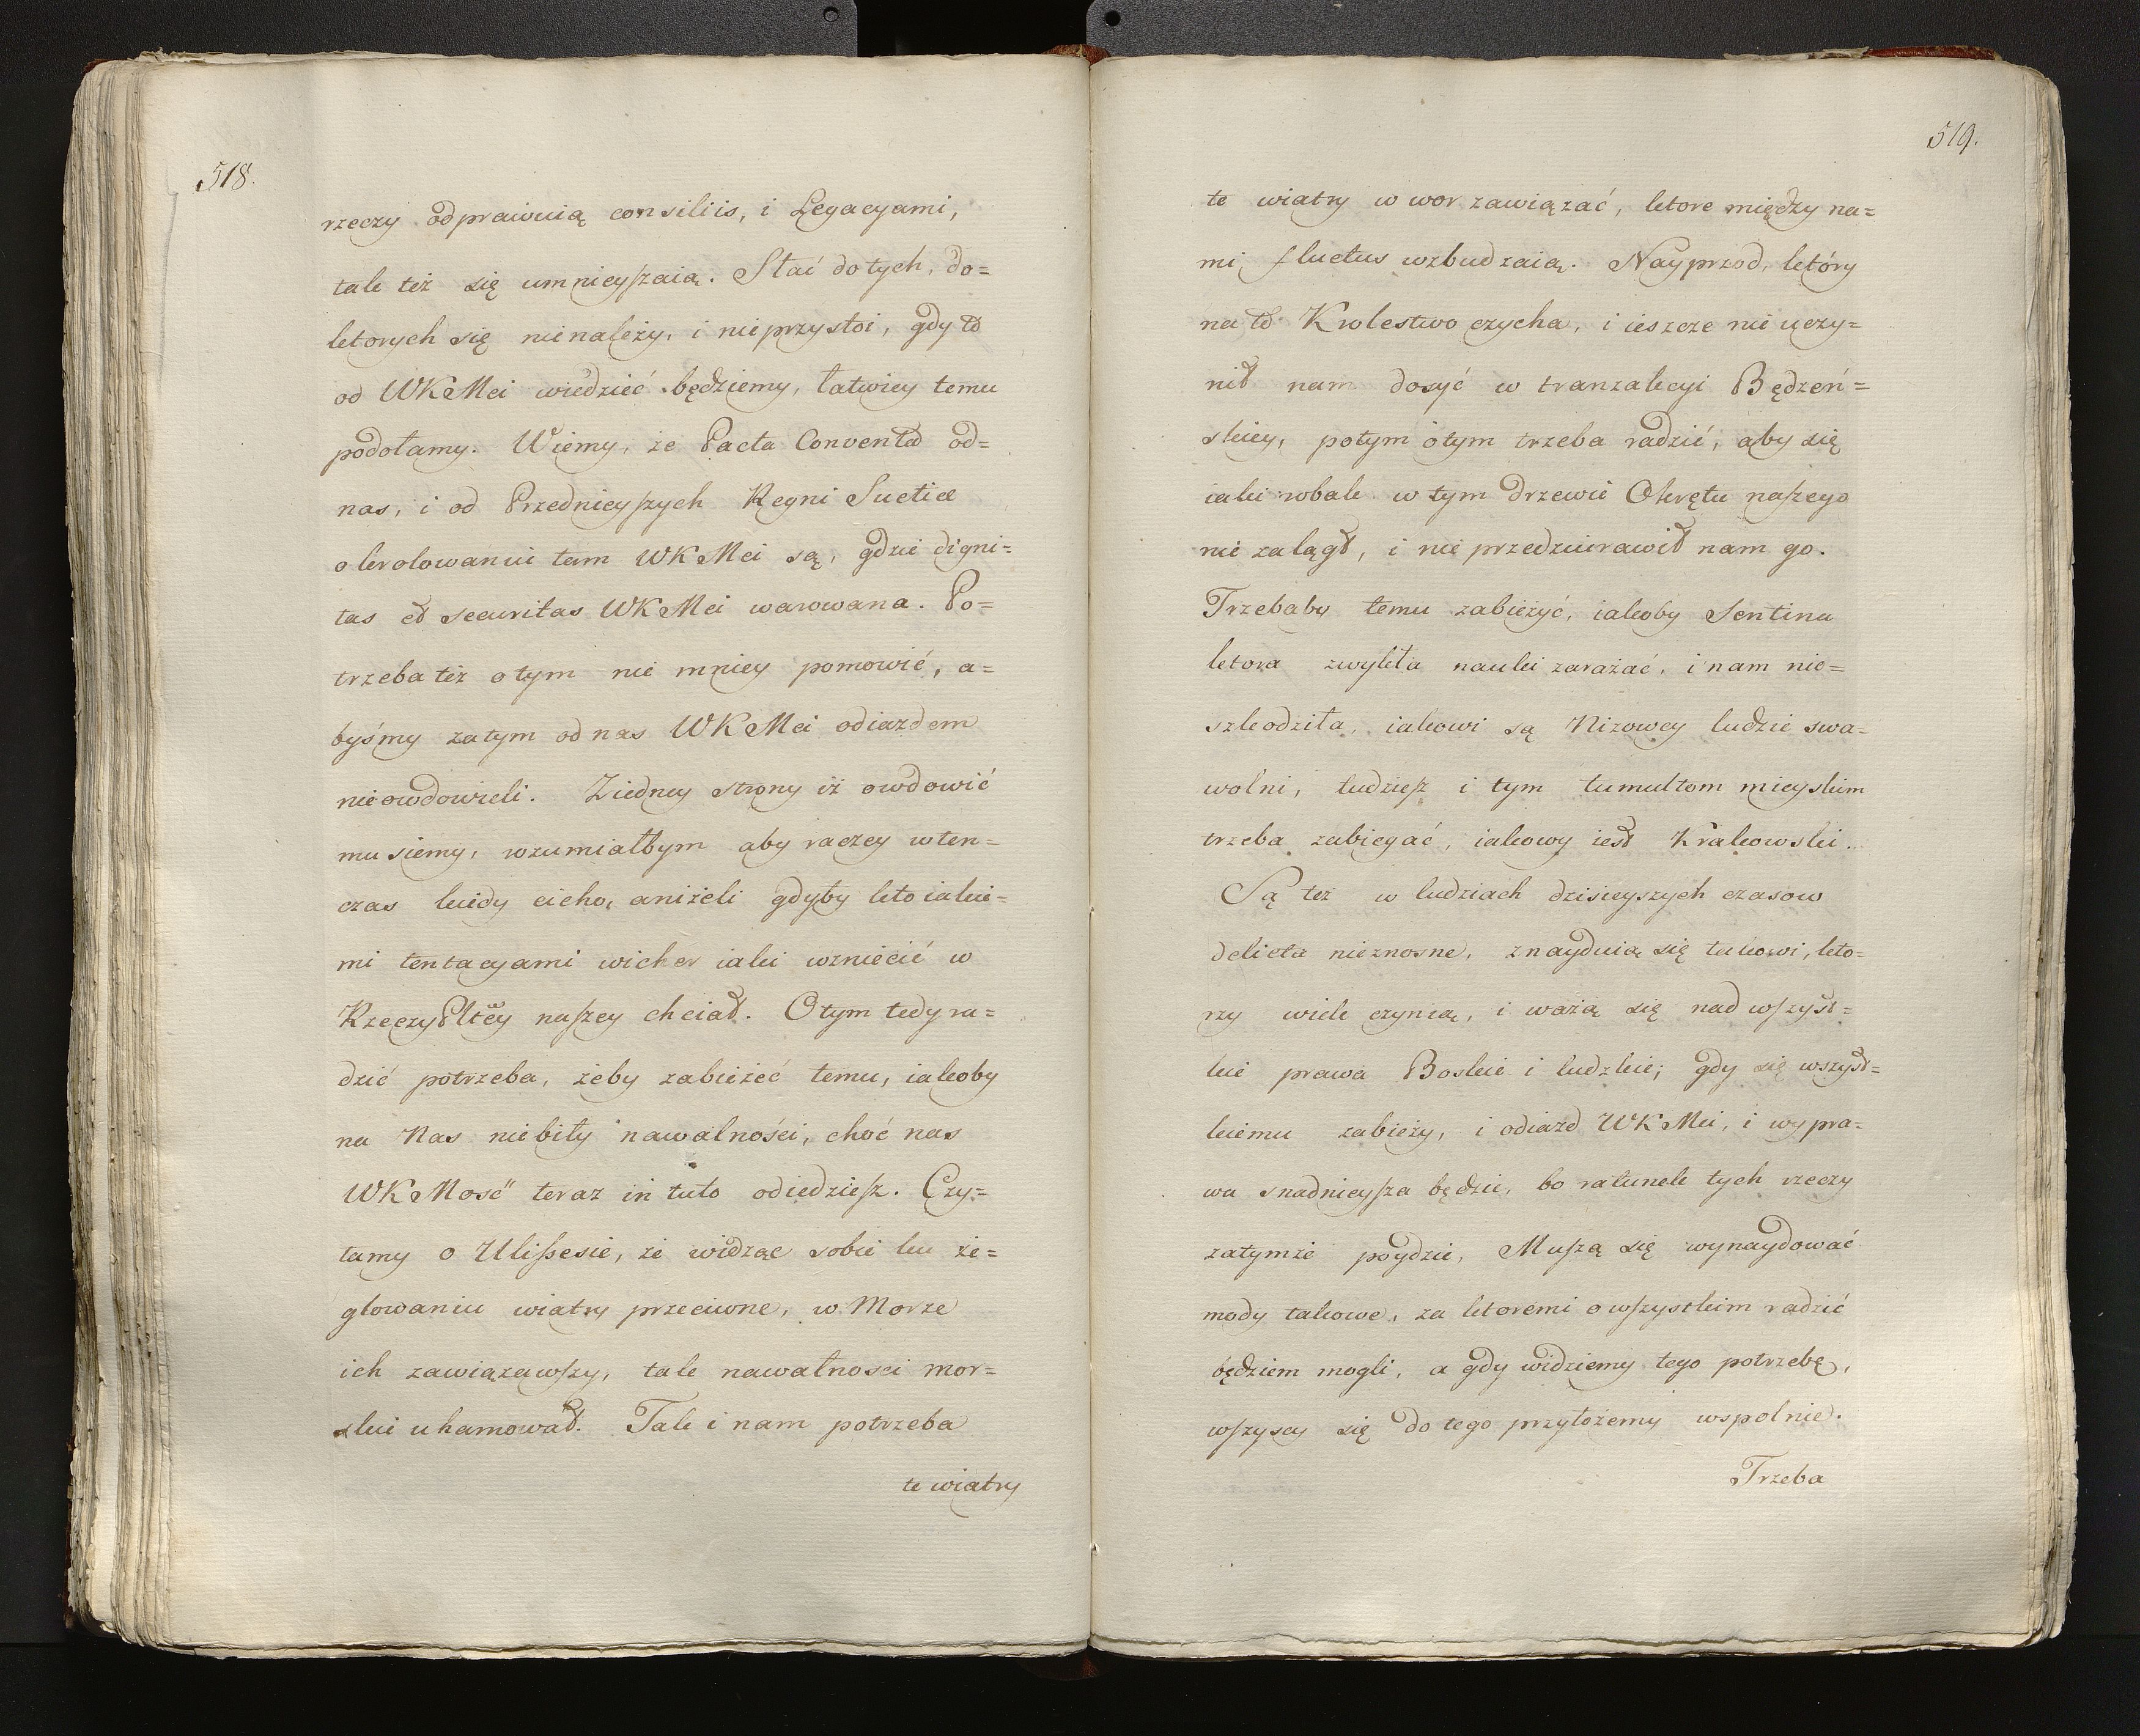 518.
rzeczy odprawuią consiliis, i Legacyami,
tak też się umnieyszaią. Słać do tych, do=
ktorych się nienależy, i nieprzystoi, gdy to
od WKMci wiedzieć będziemy, łatwiey temu
podołamy. Wiemy, że Pacta Conventa od=
nas, i od Przednieyszych Regni Suetiæ
o krolowaniu tam WKMci są, gdzie digni=
tas et securitas WKMci warowana. Po=
trzeba też o tym nie mniey pomowić, a=
byśmy zatym od nas WKMci odiazdem
nieowdowieli. Ziedney strony iż owdowić
musiemy, rozumiałbym aby raczey wten=
czas kiedy cicho, aniżeli gdyby kto iakie=
mi tentacyami wicher iaki wzniecić w
RzeczyPltey naszey chciał. O tym tedy ra=
dzić potrzeba, żeby zabieżeć temu, iakoby
na Nas niebiły nawalności, choć nas
WKMość teraz in tuto odiedziesz. Czy=
tamy o Ulissesie, że widząc sobie ku że=
glowaniu wiatry przeciwne, w Morze
ich zawiązawszy, tak nawałnosci mor=
skie uhamował. Tak i nam potrzeba
te wiatry
519.
te wiatry w wor zawiązać, ktore między na=
mi fluctus wzbudzaią. Nayprzod, który
na to Krolestwo czycha, i ieszcze nie uczy=
nił nam dosyć w tranzakcyi Będzeń=
skiey, potym o tym trzeba radzić, aby się
iaki robak w tym drzewie Okrętu naszego
nie zalągł, i nie przedziurawił nam go.
Trzebaby temu zabieżyć, iakoby Sentina
ktora zwykła nauki zarażać, i nam nie=
szkodziła, iakowi są Nizowcy ludzie swa=
wolni, tudziesz i tym tumultom mieyskim
trzeba zabiegać, iakowy iest Krakowski.
Są też w ludziach dzisieyszych czasow
delicta nieznosne, znayduią się takowi, kto=
rzy wiele czynią, i ważą się nad wszyst=
kie prawa Boskie i ludzkie; gdy się wszyst=
kiemu zabieży, i odiazd WKMci, i wypra=
wa snadnieysza będzie, bo ratunek tych rzeczy
zatymże poydzie, Muszą się wynaydować
mody takowe, za ktoremi o wszystkim radzić
będziem mogli, a gdy widziemy tego potrzebę,
wszyscy się do tego przyłożemy wspolnie.
Trzeba